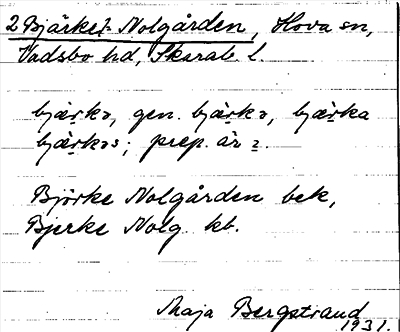 2 Bjärket Nolgården, Hova sn,
Vadsbo hd, Skarab. l.
bjærkə, gen. bjærkə, bjærka
bjærkəs; prep. är 2.
Björke Nolgården bek,
Bjerke Nolg kb.
Maja Bergstrand
1931.